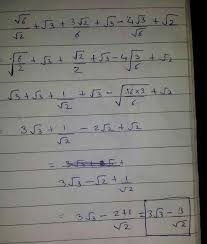 √6/√2 + √3 + 3√2/6 + √3 - 4√3/√6 + √2
= √6/2 + √3 + √2/2 + √3 - 4√3/6 + √2
√3 + √3 + 1/√2 + √3 - √16×3/6 + √2
3√3 + 1/√2 - 2√2 + √2
= 3√3
3√3 - √2 + 1/√2
= 3√3 - 2+1/√2 = 3√3 - 3/√2